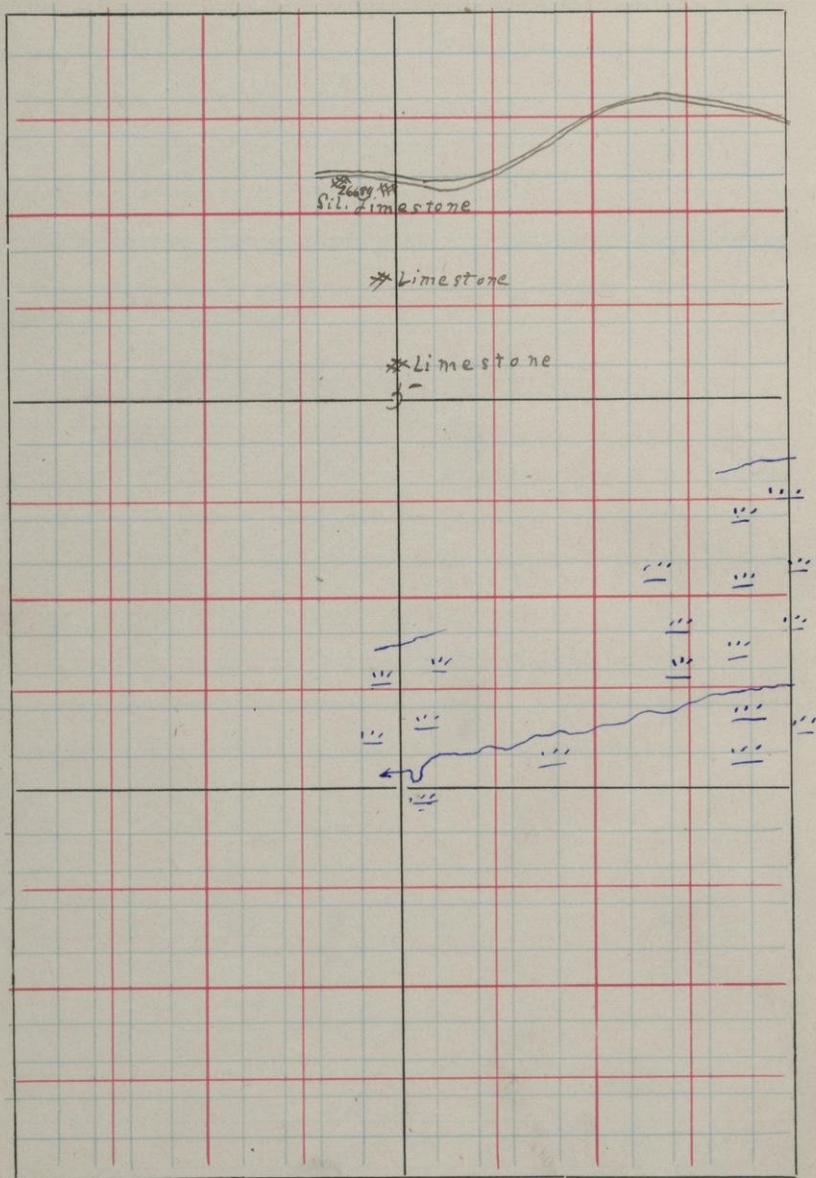 Sil. Limestone
Limestone
Limestone